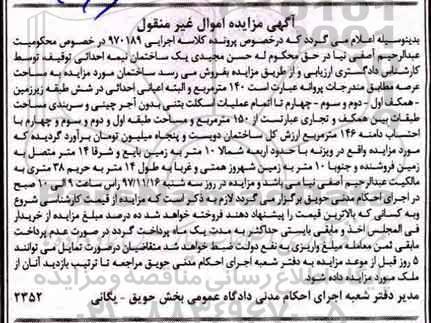 آگهی مزایده اموال غیر منقول
بدینوسیله اعلام می گردد که درخصوص پرونده کلاسه اجرایی ۹۷۰۱۸۹ در خصوص محکومیت
عبدالرحیم آصفی نیا در حق محکوم له حسن مجیدی یک ساختمان نیمه احداثی توقیف توسط
کارشناس دادگستری ارزیابی و از طریق مزایده بفروش می رسد ساختمان مورد مزایده به مساحت
عرصه مطابق مندرجات پروانه عبارت است ۱۴۰ مترمربع و البته اعیانی احداثی در شش طبقه زیرزمین
- همکف اول - دوم و سوم - چهارم تا اتمام عملیات اسکلت بتنی بدون آجر چینی و سربندی مساحت
طبقات بین همکف و تجاری عبارتست از ۱۵۰ مترمربع و مساحت طبقه اول و دوم و سوم و چهارم با
احتساب دامنه ۱۴۶ مترمربع ارزش کل ساختمان دویست و پنجاه میلیون تومان برآورد گردیده که
مورد مزایده واقع در ویزنه با حدود اربعه شمالا ۱۰ متر به زمین بایع و شرقا ۱۴ متر متصل به
زمین فروشنده و جنوبا ۱۰ متر به زمین شهروز همتی و غربا به طول ۱۴ متر به حریم ۳۸ متری به
مالکیت عبدالرحیم آصفی نیا می باشد و مزایده در روز سه شنبه ۹۷/۱۱/۱۶ راس ساعت ۹ الی ۱۰ صبح
در اجرای احکام مدنی حویق برگزار می گردد لازم به ذکر است که مزایده از قیمت کارشناسی شروع
وبه کسانی که بالاترین قیمت را پیشنهاد دهند فروخته خواهد شد ده درصد مبلغ مزایده از خریدار
فی المجلس اخذ و مابقی بایستی حداکثر به مدت یک ماه پرداخت گردد در صورت عدم پرداخت
مابقی ثمن معامله مبلغ واریزی به نفع دولت ضبط خواهد شد متقاضیان درصورت تمایل می توانند
۵ روز قبل از موعد مزایده به دفتر شعبه اجرای احکام مدنی حویق مراجعه تا ترتیب بازدید آنان از
ملک مورد مزایده داده شود
مدیر دفتر شعبه اجرای احکام مدنی دادگاه عمومی بخش حویق - یگانی ۲۳۵۲